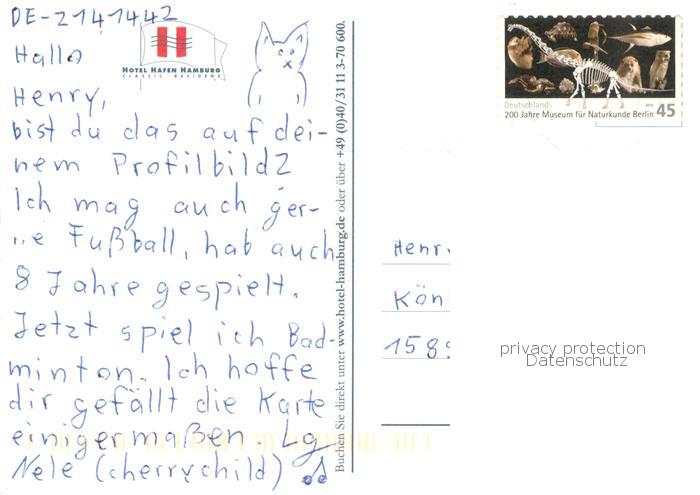 DE-2141442
Hallo
Henry,
bist du das auf dei-
nem Profilbild?
Ich mag auch ger-
ne Fußball, hab auch
8 Jahre gespielt.
Jetzt spiel ich Bad-
minton. Ich hoffe
dir gefällt die Karte
einigermaßen. Lg
Nele (cherrychild)
HOTEL HAFEN HAMBURG
CLASSIC RESIDENZ
Buchen Sie direkt unter www.hotel-hamburg.de oder über +49 (0)40/31 11 3-70 600.
Deutschland
200 Jahre Museum für Naturkunde Berlin 45
Henr
Kön
158
privacy protection
Datenschutz